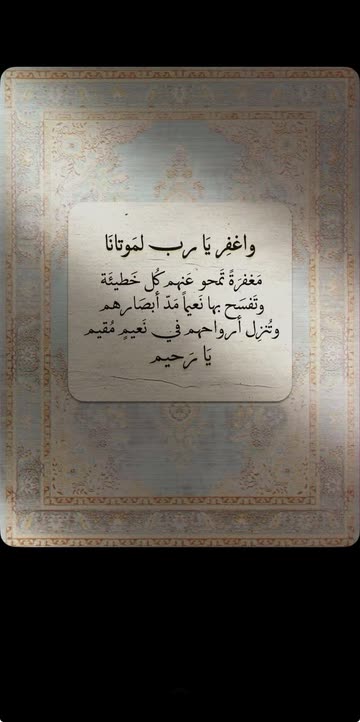 واغفِر يَا رب لمَوتانَا
مَغفرَةً تَمحو عَنهم كُل خَطيئَة
وتَفسَح بها نَعيماً مَدّ أبصَارهم
وتُنزِل أرواحهم في نَعيمٍ مُقيم
يَا رَحيم